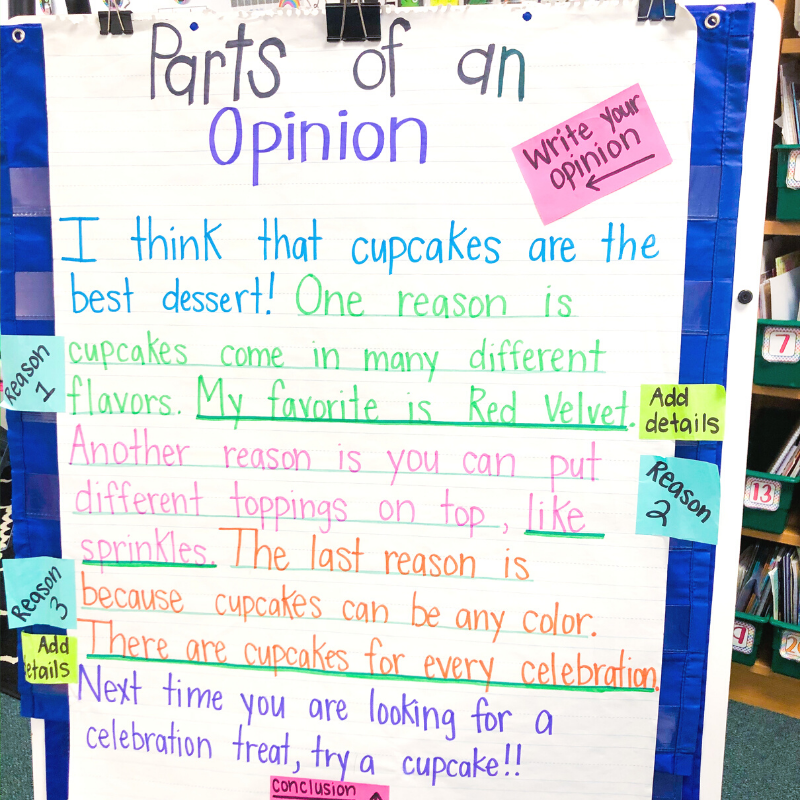 Parts of an
Opinion
Write your
opinion
I think that cupcakes are the
best dessert! One reason is
Reason
1
cupcakes come in many different
flavors. My favorite is Red Velvet.
Add
details
Another reason is you can put
Reason
2
different toppings on top, like
sprinkles. The last reason is
Reason
3
because cupcakes can be any color.
Add
etails
There are cupcakes for every celebration.
Next time you are looking for a
celebration treat, try a cupcake!!
conclusion
7
13
9